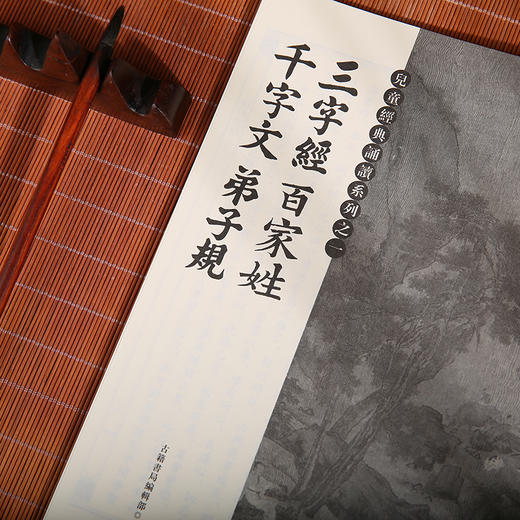 兒童經典誦讀系列之一
三字經 百家姓
千字文 弟子規
古籍書局編輯部